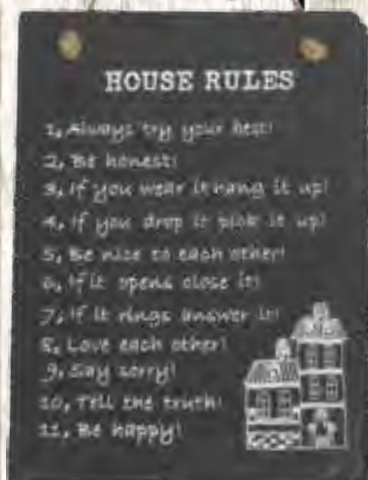 HOUSE RULES
1, Always try your best!
2, Be honest!
3, If you wear it hang it up!
4, If you drop it pick it up!
5, Be nice to each other!
6, If it opens close it!
7, If it rings answer it!
8, Love each other!
9, Say sorry!
10, Tell the truth!
11, Be happy!